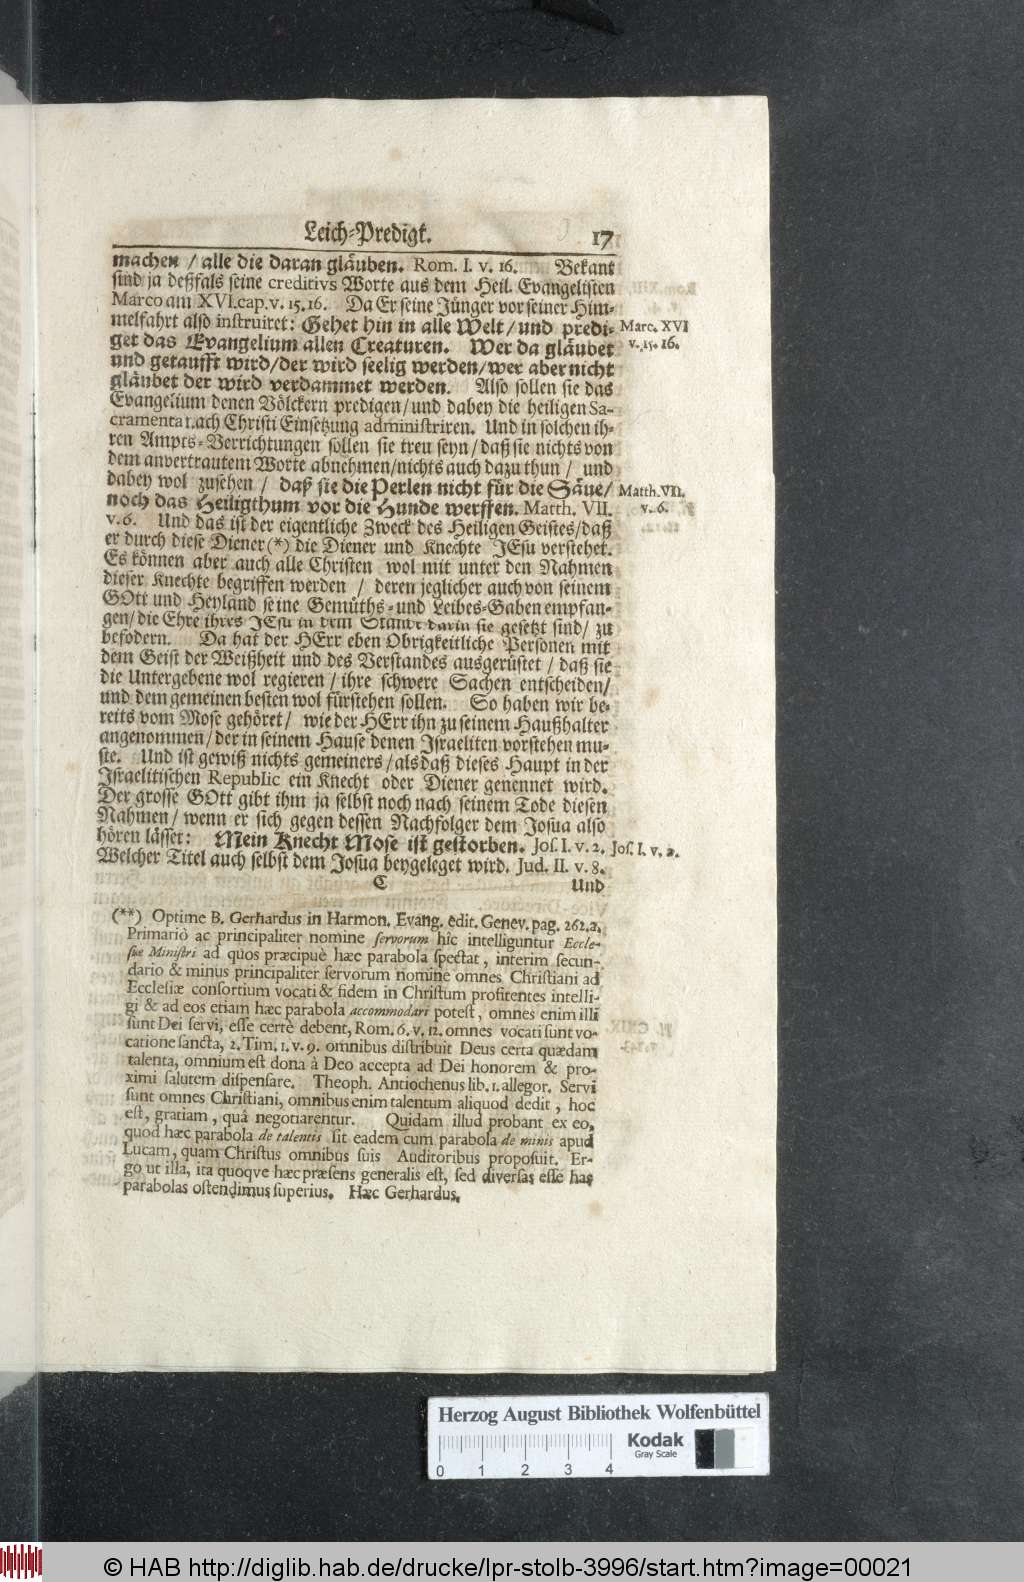 Leich-Predigt. 17
machen / alle die daran gläuben. Rom. I. v. 16. Bekant
sind ja deßfals seine creditivs Worte aus dem Heil. Evangelisten
Marco am XVI. cap. v. 15. 16. Da Er seine Jünger vor seiner Him-
melfahrt also instruiret: Gehet hin in alle Welt / und predi-
Marc. XVI
get das Evangelium allen Creaturen. Wer da gläubet
v. 15. 16.
und getaufft wird / der wird seelig werden / wer aber nicht
gläubet der wird verdammet werden. Also sollen sie das
Evangelium denen Völckern predigen / und dabey die heiligen Sa-
cramenta nach Christi Einsetzung administriren. Und in solchen ih-
ren Ampts-Verrichtungen sollen sie treu seyn / daß sie nichts von
dem anvertrautem Worte abnehmen / nichts auch dazu thun / und
dabey wol zusehen / daß sie die Perlen nicht für die Säue /
Matth. VII.
noch das Heiligthum vor die Hunde werffen. Matth. VII.
v. 6.
v. 6. Und das ist der eigentliche Zweck des Heiligen Geistes / daß
er durch diese Diener (*) die Diener und Knechte JEsu verstehet.
Es können aber auch alle Christen wol mit unter den Nahmen
dieser Knechte begriffen werden / deren jeglicher auch von seinem
GOtt und Heyland seine Gemüths- und Leibes-Gaben empfan-
gen / die Ehre ihres JEsu in dem Stande darin sie gesetzt sind / zu
befodern. Da hat der HErr eben Obrigkeitliche Personen mit
dem Geist der Weißheit und des Verstandes ausgerüstet / daß sie
die Untergebene wol regieren / ihre schwere Sachen entscheiden /
und dem gemeinen besten wol fürstehen sollen. So haben wir be-
reits vom Mose gehöret / wie der HErr ihn zu seinem Haußhalter
angenommen / der in seinem Hause denen Israeliten vorstehen mu-
ste. Und ist gewiß nichts gemeiners / als daß dieses Haupt in der
Israelitischen Republic ein Knecht oder Diener genennet wird.
Der grosse GOtt gibt ihm ja selbst noch nach seinem Tode diesen
Nahmen / wenn er sich gegen dessen Nachfolger dem Josua also
hören lässet: Mein Knecht Mose ist gestorben. Jos. I. v. 2.
Jos. I. v. 2.
Welcher Titel auch selbst dem Josua beygeleget wird. Jud. II. v. 8.
C Und
(**) Optime B. Gerhardus in Harmon. Evang. edit. Genev. pag. 262. a.
Primariò ac principaliter nomine servorum hîc intelliguntur Eccle-
siæ Ministri ad quos præcipuè hæc parabola spectat, interim secun-
dario & minus principaliter servorum nomine omnes Christiani ad
Ecclesiæ consortium vocati & fidem in Christum profitentes intelli-
gi & ad eos etiam hæc parabola accommodari potest, omnes enim illi
sunt Dei servi, esse certè debent, Rom. 6. v. 12. omnes vocati sunt vo-
catione sancta, 2. Tim. 1. v. 9. omnibus distribuit Deus certa quædam
talenta, omnium est dona à Deo accepta ad Dei honorem & pro-
ximi salutem dispensare. Theoph. Antiochenus lib. 1. allegor. Servi
sunt omnes Christiani, omnibus enim talentum aliquod dedit, hoc
est, gratiam, quâ negotiarentur. Quidam illud probant ex eo,
quod hæc parabola de talentis sit eadem cum parabola de minis apud
Lucam, quam Christus omnibus suis Auditoribus proposuit. Er-
go ut illa, ita quoqve hæc præsens generalis est, sed diversas esse has
parabolas ostendimus superius. Hæc Gerhardus.
Herzog August Bibliothek Wolfenbüttel
Kodak
Gray Scale
0 1 2 3 4
© HAB http://diglib.hab.de/drucke/lpr-stolb-3996/start.htm?image=00021